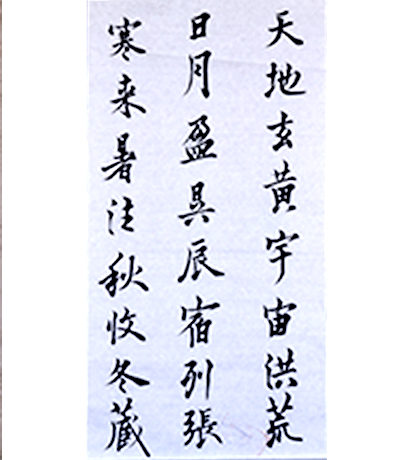 天地玄黄宇宙洪荒
日月盈昃辰宿列張
寒来暑往秋收冬藏